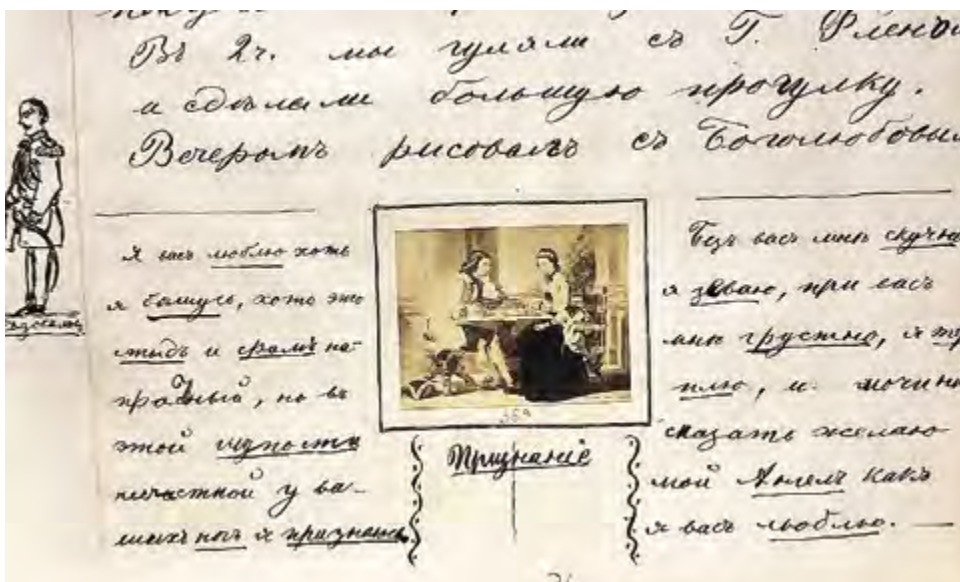 Въ 2ч. мы гуляли съ Г.
и сдѣлали большую прогулку.
Вечеромъ рисовалъ съ Боголюбовы
Я васъ люблю хоть
я бѣшусь, хоть это
стыдъ и срамъ на-
прасный, но въ
этой глупости
нечастной у ва-
шихъ ногъ я признаюсь
Признанiе
Безъ васъ мнѣ скучно
я зѣваю, при васъ
мнѣ грустно, я
плю, и мочи
сказать желаю
мой Ангелъ какъ
я васъ люблю.